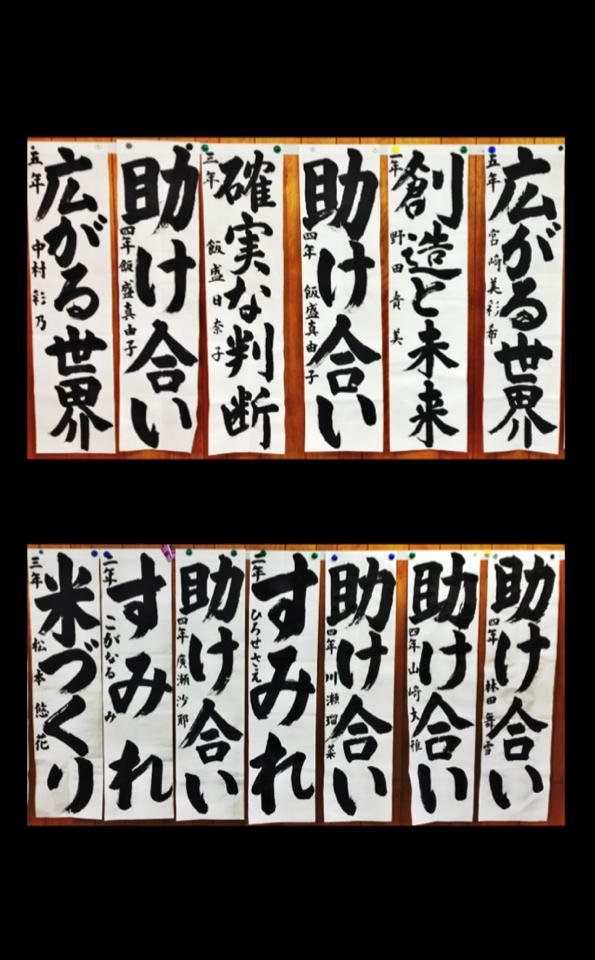 広がる世界
五年 宮崎美彩希
創造と未来
一年 野田貴美
助け合い
四年 飯盛真由子
確実な判断
三年 飯盛日奈子
助け合い
四年 飯盛真由子
広がる世界
五年 中村彩乃
助け合い
四年 林田舞雪
助け合い
四年 山崎大雅
助け合い
四年 川瀬瑠菜
すみれ
二年 ひろせさえ
助け合い
四年 廣瀬沙耶
すみれ
二年 こがなるみ
米づくり
三年 松本悠花